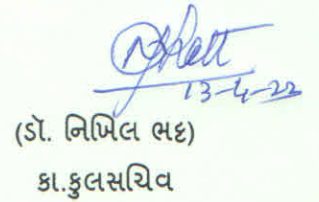 13-4-22
(ડૉ. નિખિલ ભટ્ટ)
કા.કુલસચિવ